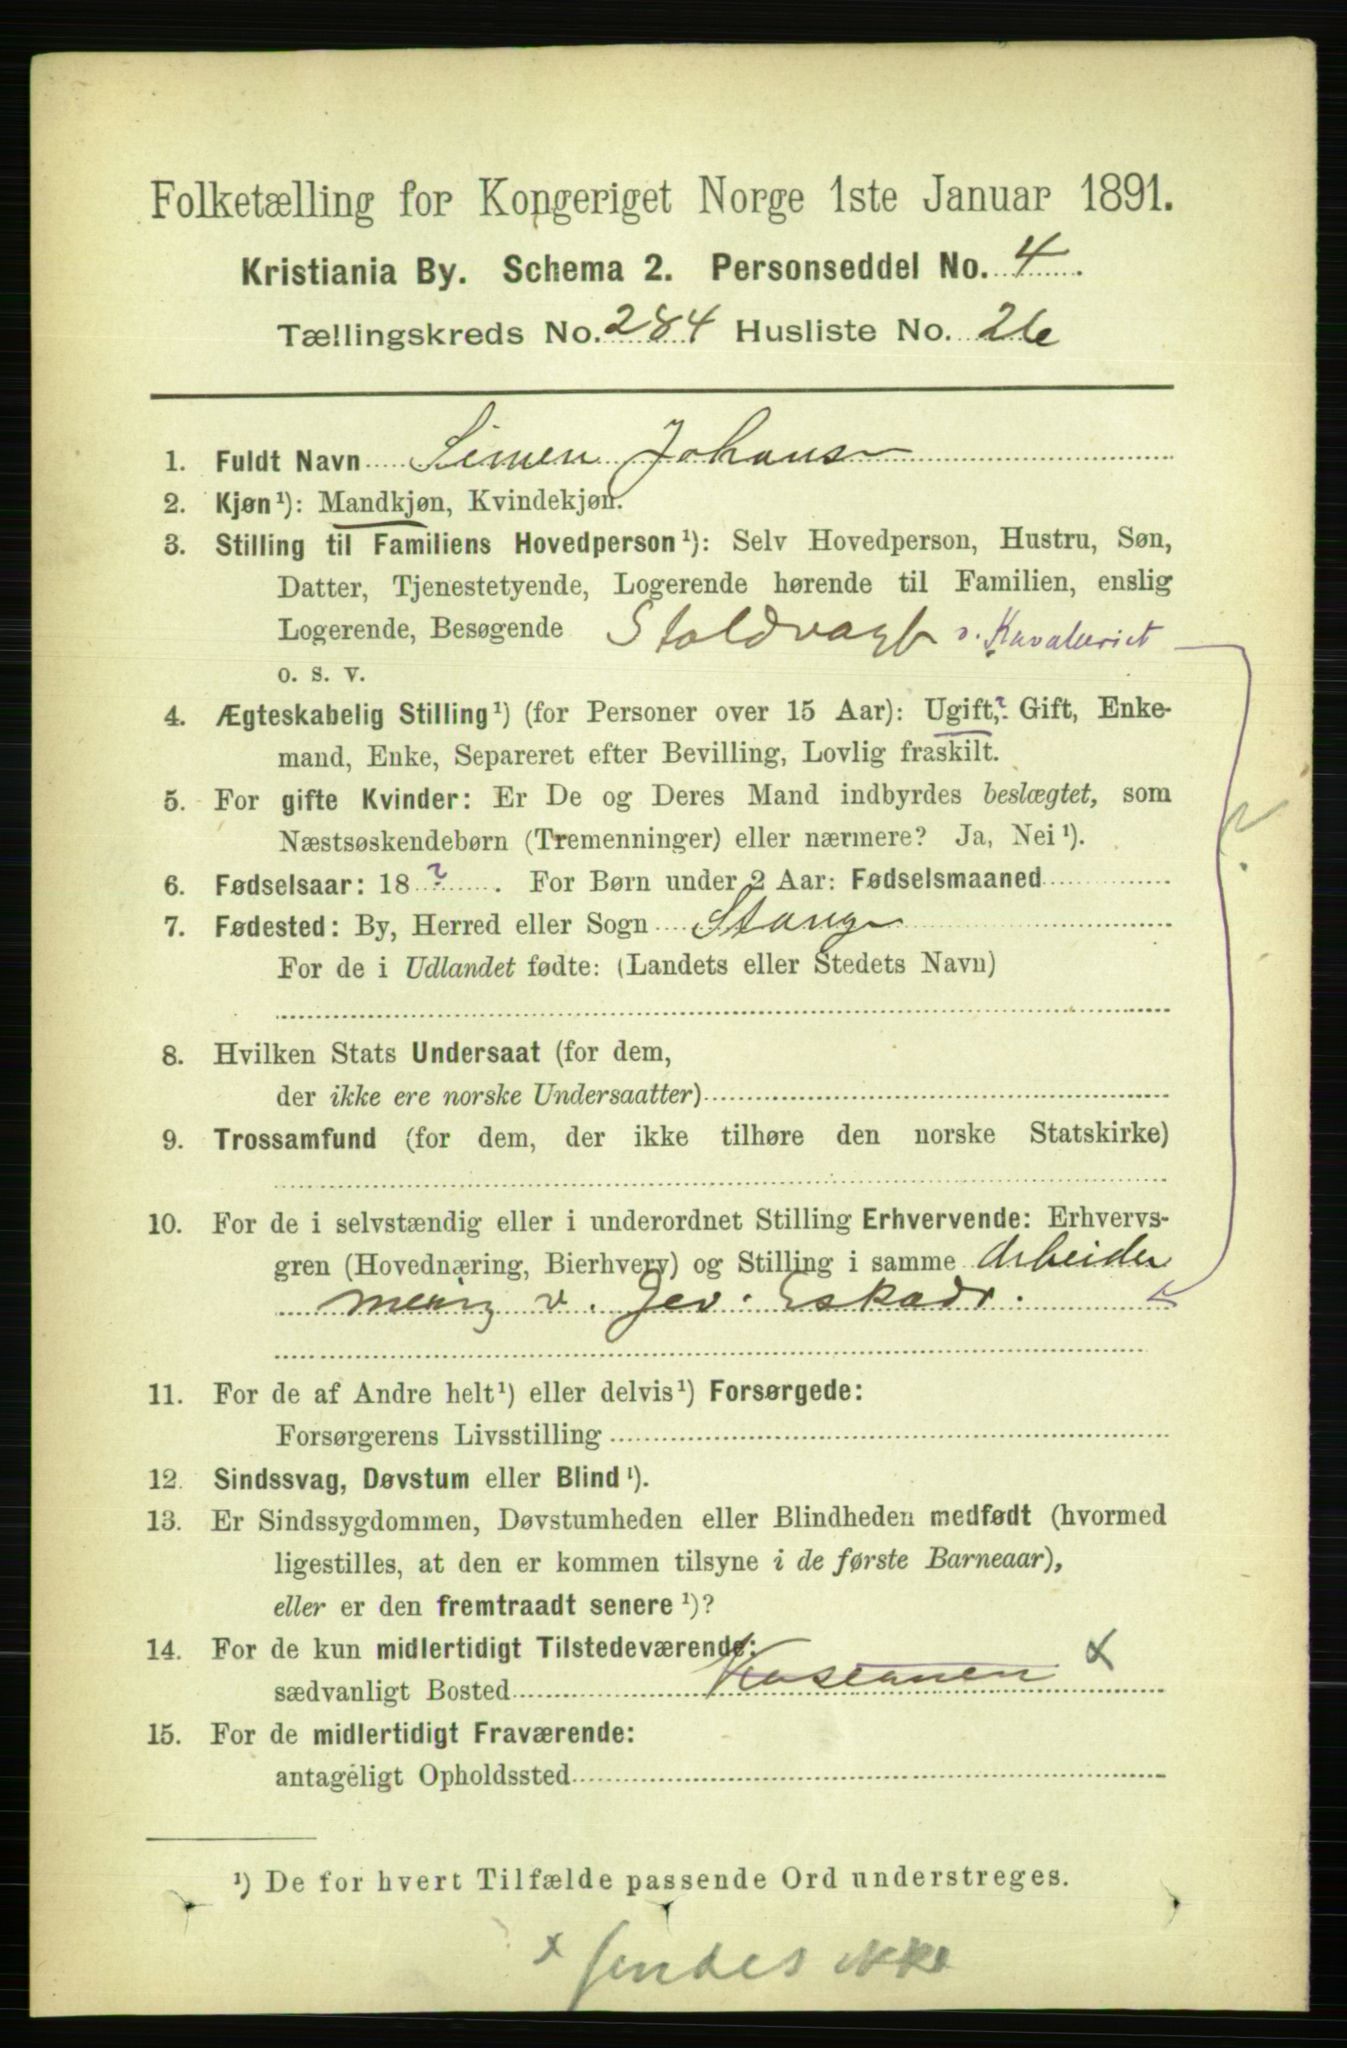 Folketælling for Kongeriget Norge 1ste Januar 1891.
Kristiania By. Schema 2. Personseddel No. 4.
Tællingskreds No. 284 Husliste No. 26
1. Fuldt Navn Simen Johans
2. Kjøn¹): Mandkjøn, Kvindekjøn.
3. Stilling til Familiens Hovedperson¹): Selv Hovedperson, Hustru, Søn,
Datter, Tjenestetyende, Logerende hørende til Familien, enslig
Logerende, Besøgende Staldvagt v. Kavaleriet
o. s. v.
4. Ægteskabelig Stilling¹) (for Personer over 15 Aar): Ugift,? Gift, Enke-
mand, Enke, Separeret efter Bevilling, Lovlig fraskilt.
5. For gifte Kvinder: Er De og Deres Mand indbyrdes beslægtet, som
Næstsøskendebørn (Tremenninger) eller nærmere? Ja, Nei¹).
?
6. Fødselsaar: 18 ? . For Børn under 2 Aar: Fødselsmaaned
7. Fødested: By, Herred eller Sogn Stange
For de i Udlandet fødte: (Landets eller Stedets Navn)
8. Hvilken Stats Undersaat (for dem,
der ikke ere norske Undersaatter)
9. Trossamfund (for dem, der ikke tilhøre den norske Statskirke)
10. For de i selvstændig eller i underordnet Stilling Erhvervende: Erhvervs-
gren (Hovednæring, Bierhverv) og Stilling i samme Arbeider
menig v. Gev. Eskadr.
11. For de af Andre helt¹) eller delvis¹) Forsørgede:
Forsørgerens Livsstilling
12. Sindssvag, Døvstum eller Blind¹).
13. Er Sindssygdommen, Døvstumheden eller Blindheden medfødt (hvormed
ligestilles, at den er kommen tilsyne i de første Barneaar),
eller er den fremtraadt senere¹)?
14. For de kun midlertidigt Tilstedeværende:
sædvanligt Bosted x
15. For de midlertidigt Fraværende:
antageligt Opholdssted
¹) De for hvert Tilfælde passende Ord understreges.
x findes ikke